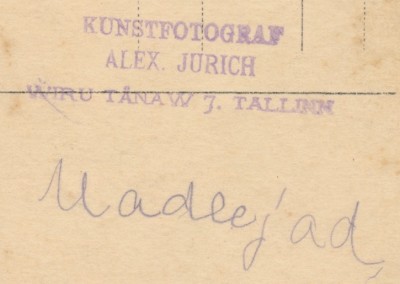 KUNSTFOTOGRAF
ALEX. JURICH
WIRU TÄNAW 7. TALLINN
Uadeejad